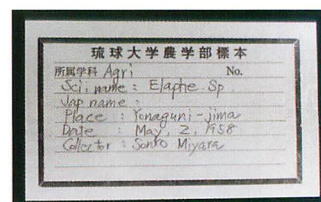 琉球大学農学部標本
所属学科 Agri No.
Sci name : Elaphe Sp.
Jap name :
Place : Yonaguni-jima
Date : May, 2, 1958
Collector : Sonko Miyara